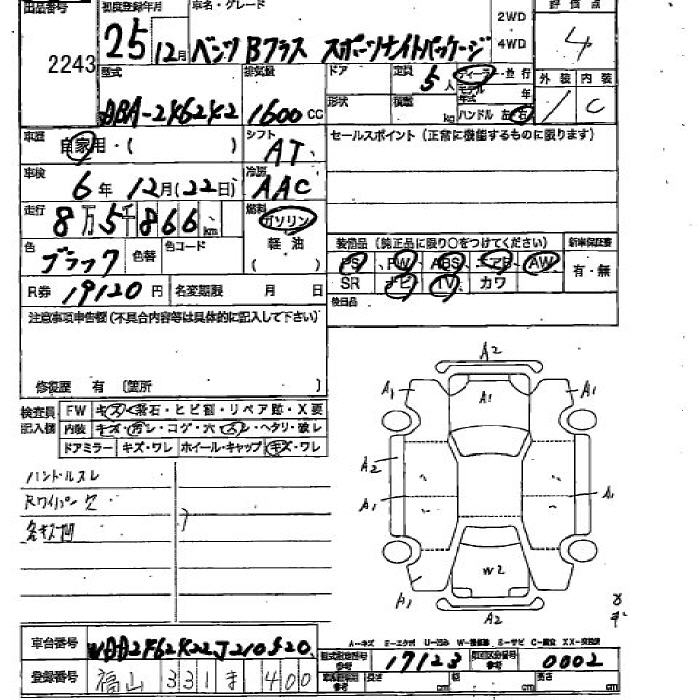 出品番号 初度登録年月 車名・グレード 評価点
2243 25 12月 ベンツ Bプラス スポーツナイトパッケージ 2WD 4WD 4
型式 排気量 ドア 定員 5人 ディーラー・並行 外装 内装
1600cc 形状 積載 kg モデル年式 年 ハンドル 左 右 C
車歴 自家用・( ) シフト AT セールスポイント(正常に機能するものに限ります)
車検 6年 12月(22日) 冷房 AAC
走行 8万5千866km 燃料 ガソリン 軽油 ( )
色 ブラック 色替 色コード
装備品(純正品に限り○をつけてください) 新車保証書
PS PW ABS エアB AW 有・無
SR ナビ TV カワ
R券 19120円 名変期限 月 日
後日品
注意事項申告欄(不具合内容等は具体的に記入して下さい)
修復歴 有 (箇所 )
検査員記入欄 FW キズ・飛石・ヒビ割・リペア跡・X要
内装 キズ・ヨゴレ・コゲ・穴・スレ・ヘタリ・破レ
ドアミラー キズ・ワレ ホイール・キャップ キズ・ワレ
ハンドルスレ
Rワイパー
各キズ凹
A2
A1 A1 A1
A2
A1 A1
W2
A1
A2
A-キズ E-エクボ U-凹み W-補修跡 S-サビ C-腐食 XX-交換済
車台番号
型式指定番号 参考 17123 類別区分番号 参考 0002
登録番号 福山 331 ま 400
長さ cm 幅 cm 高さ cm